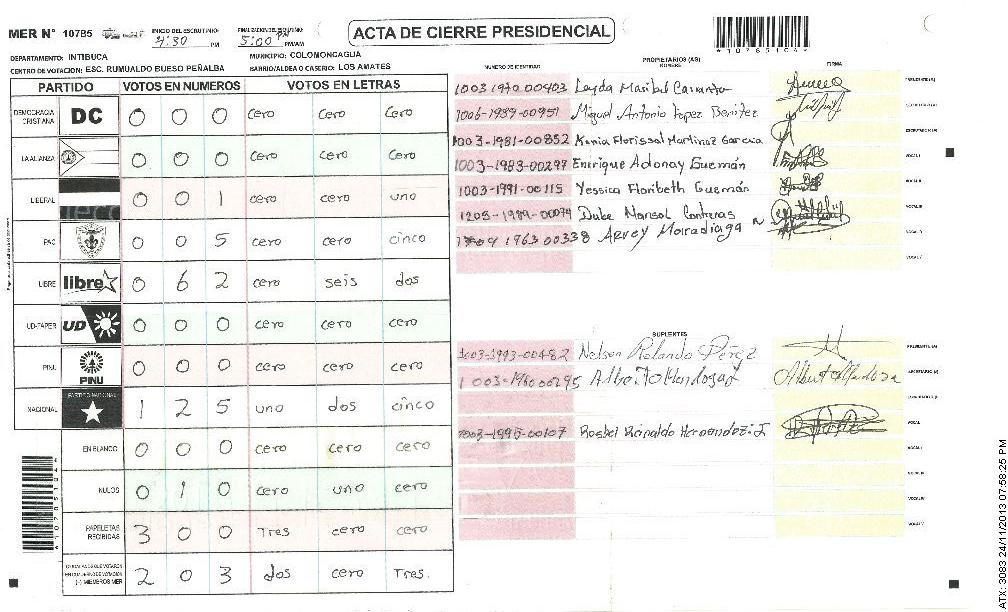 ACTA DE CIERRE PRESIDENCIAL
MER N° 10785
INICIO DEL ESCRUTINIO: 4:30 PM
FINALIZACION DEL ESCRUTINIO: 5:00 PM PM/AM
DEPARTAMENTO: INTIBUCA
MUNICIPIO: COLOMONCAGUA
CENTRO DE VOTACION: ESC. RUMUALDO BUESO PEÑALBA
BARRIO/ALDEA O CASERIO: LOS AMATES
PARTIDO VOTOS EN NUMEROS VOTOS EN LETRAS
DEMOCRACIA CRISTIANA DC 0 0 0 cero cero cero
LA ALIANZA 0 0 0 cero cero cero
LIBERAL 0 0 1 cero cero uno
PAC 0 0 5 cero cero cinco
LIBRE libre 0 6 2 cero seis dos
UD-FAPER UD 0 0 0 cero cero cero
PINU PINU 0 0 0 cero cero cero
NACIONAL PARTIDO NACIONAL 1 2 5 uno dos cinco
EN BLANCO 0 0 0 cero cero cero
NULOS 0 1 0 cero uno cero
PAPELETAS RECIBIDAS 3 0 0 Tres cero cero
CIUDADANOS QUE VOTARON EN CUADERNO DE VOTACION (+) MIEMBROS MER 2 0 3 dos cero Tres.
PROPIETARIOS (AS)
NUMERO DE IDENTIDAD NOMBRE FIRMA
1003 1970 00403 Leyda Maribel
1006-1989-00951 Miguel Antonio Lopez Benitez
1003-1981-00852 Kenia Florissel Martinez Garcia
1003-1983-00297 Enrique Adonay Guzmán
1003-1991-00115 Yessica Floribeth Guzmán
1205-1989-00079 Dulce Marisol Contreras
1963 00338 Arvey Moradiaga
SUPLENTES
1003-1993-00482 Nelson Rolando Pérez
1003-1960 00295 Alberto Mendoza
1003-1995-00107 Rosbel Reinaldo Hernandez J.
ATX: 3083 24/11/2013 07:58:25 PM